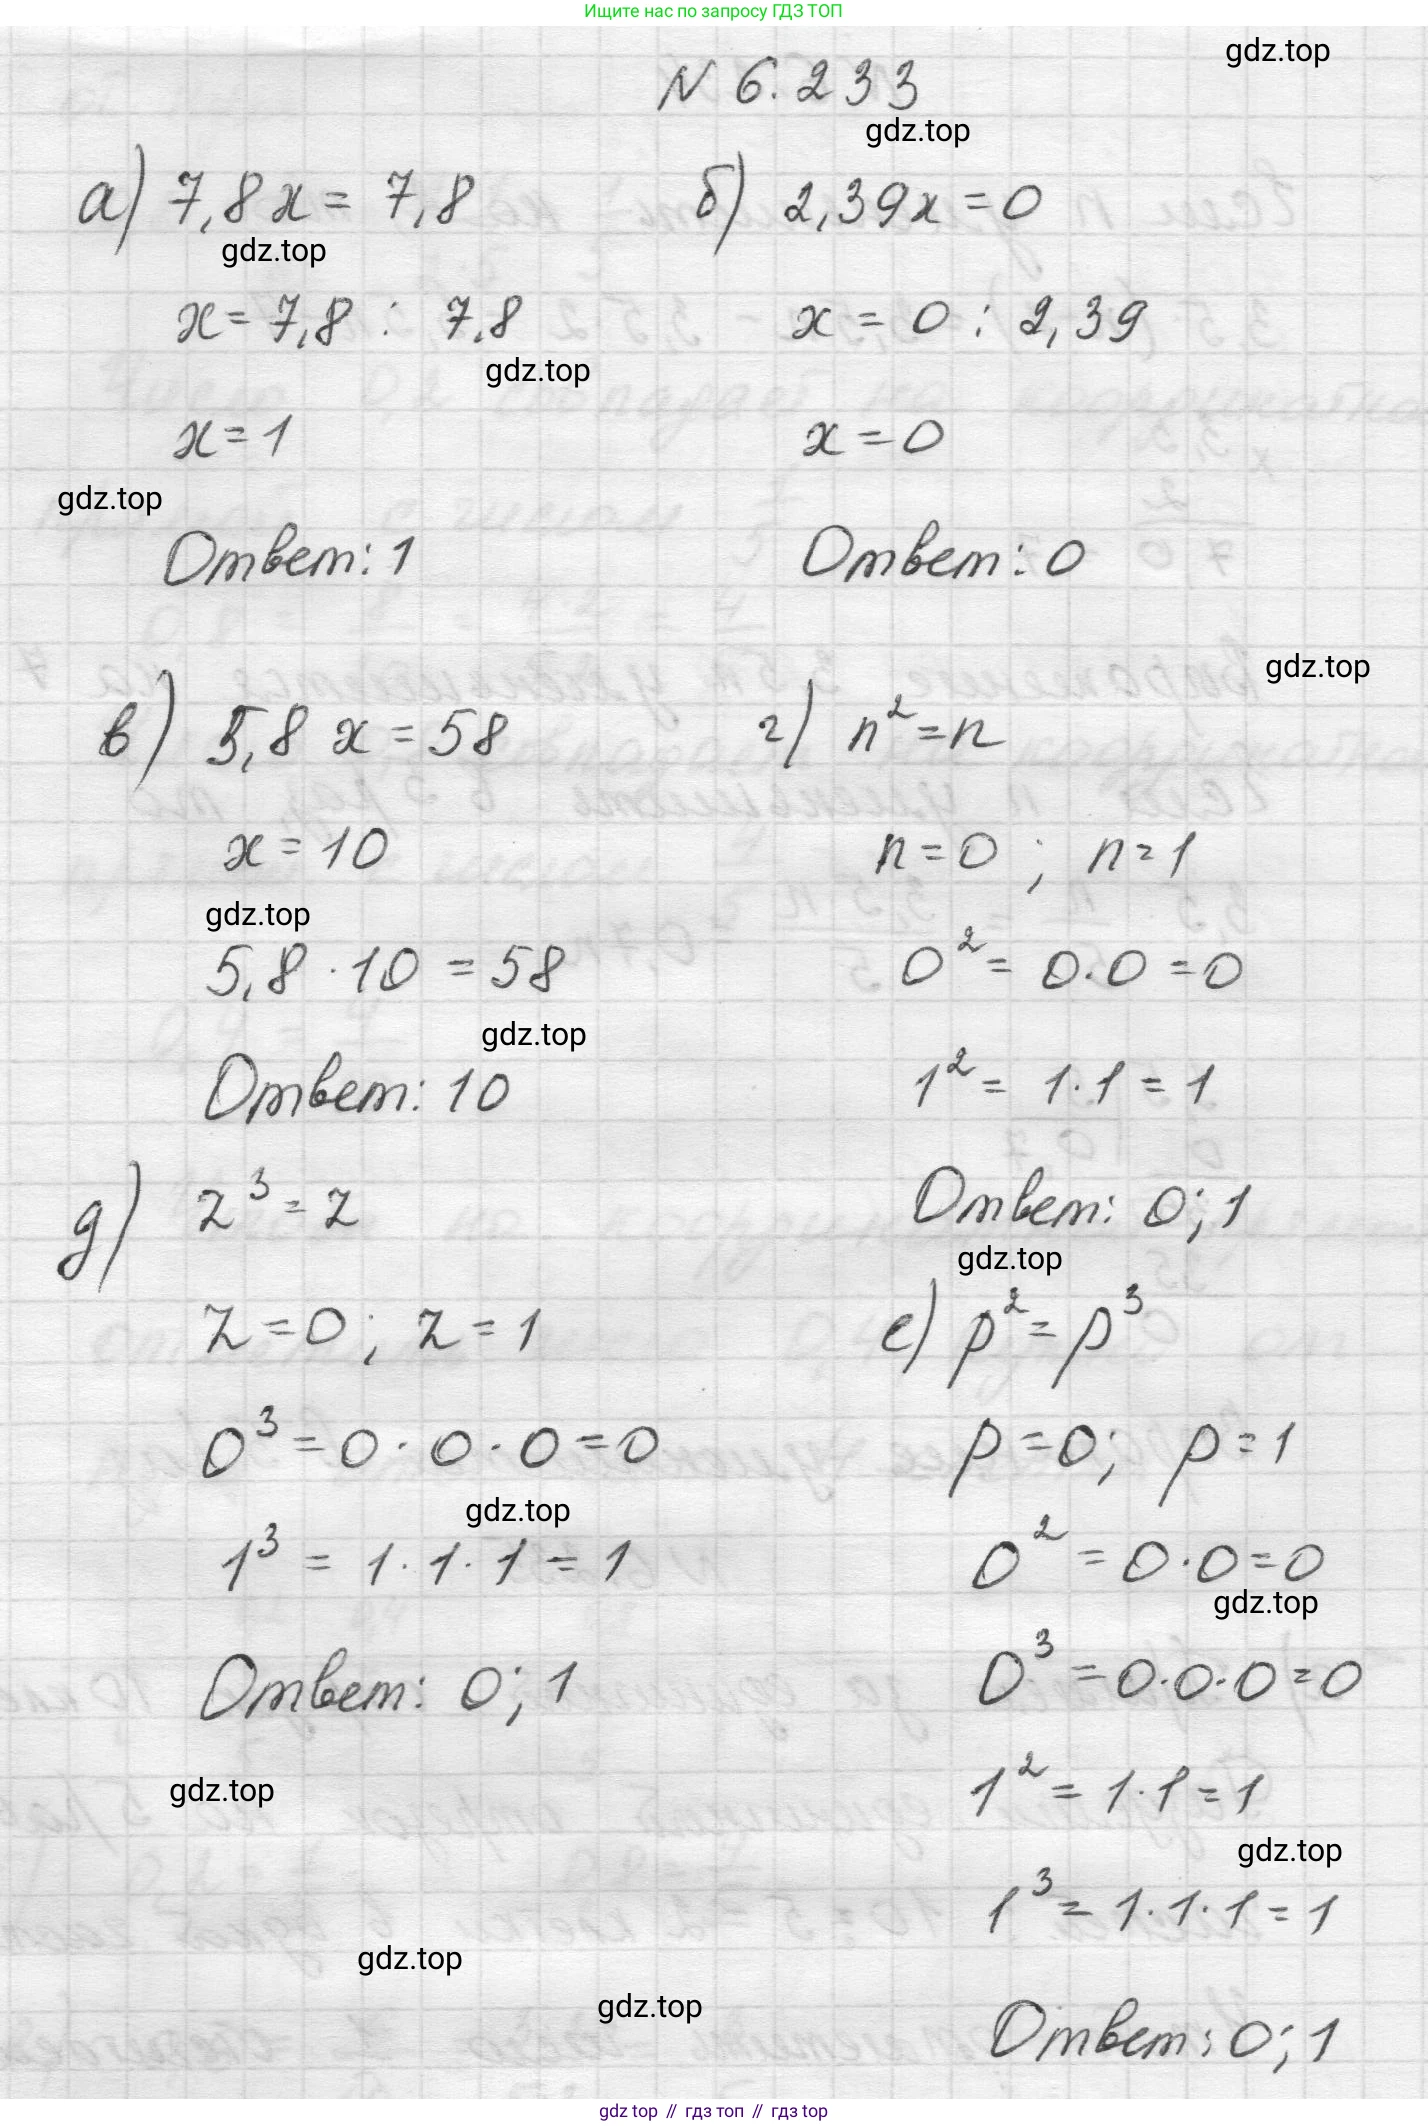 Ищите нас по запросу ГДЗ ТОП
gdz.top
N 6.233
gdz.top
а) 7,8x = 7,8
gdz.top
x = 7,8 : 7,8
gdz.top
x = 1
gdz.top
Ответ: 1
б) 2,39x = 0
x = 0 : 2,39
x = 0
Ответ: 0
gdz.top
в) 5,8 x = 58
x = 10
gdz.top
5,8 · 10 = 58
gdz.top
Ответ: 10
г) n² = n
n = 0 ; n = 1
0² = 0·0 = 0
1² = 1·1 = 1
Ответ: 0; 1
gdz.top
д) z³ = z
z = 0; z = 1
0³ = 0 · 0 · 0 = 0
gdz.top
1³ = 1·1·1 = 1
Ответ: 0; 1
gdz.top
е) p² = p³
p = 0; p = 1
0² = 0·0 = 0
gdz.top
0³ = 0·0·0 = 0
1² = 1·1 = 1
gdz.top
1³ = 1·1·1 = 1
gdz.top
gdz.top
Ответ: 0; 1
gdz top // гдз топ // гдз top